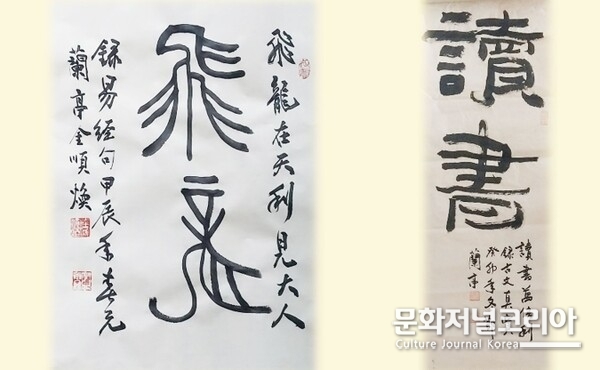 飛龍在天利見大人
飛龍
錄易經句甲辰年春元
蘭亭金順煥
讀書
讀書萬倍利
錄古文真
癸卯年冬
蘭亭
문화저널코리아
Culture Journal Korea